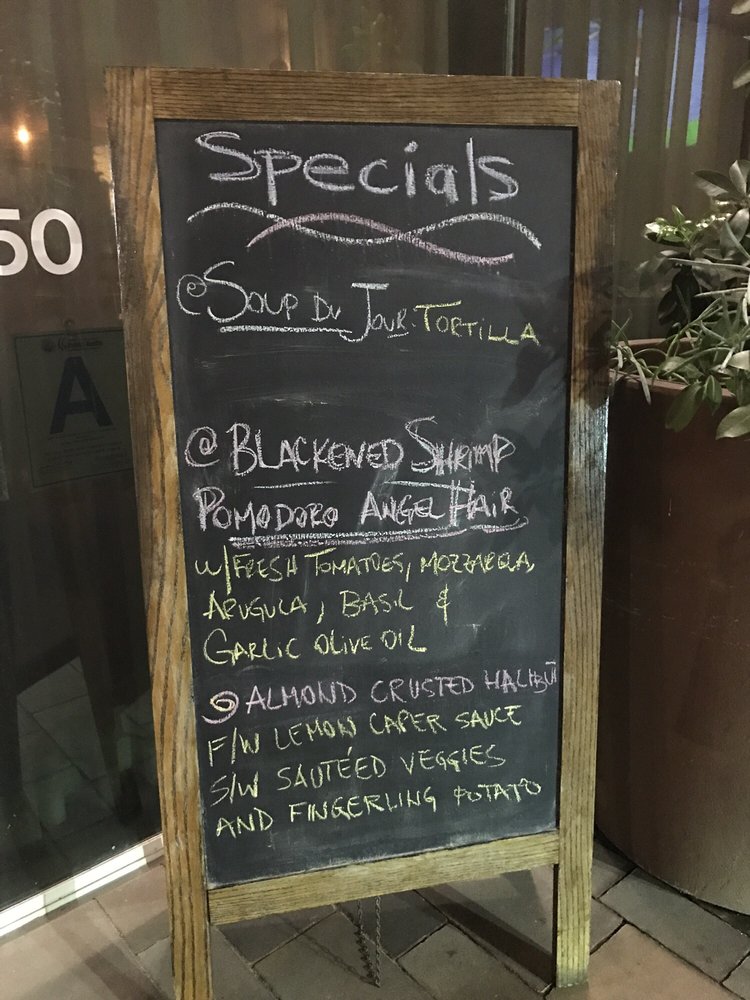 50
A
Specials
@ Soup Du Jour. Tortilla
@ Blackened Shrimp
Pomodoro Angel Hair
w/Fresh Tomatoes, Mozzarela,
Arugula, Basil &
Garlic Olive Oil
@ ALMOND CRUSTED HALIBUT
F/W LEMON CAPER SAUCE
S/W SAUTÉED VEGGIES
AND FINGERLING POTATO